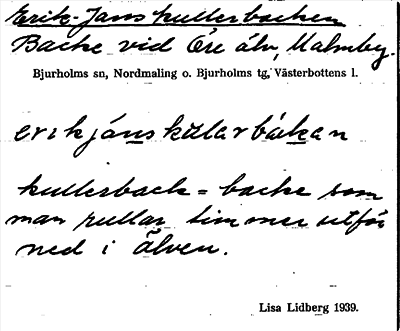 Erik-Jans kullerbacken
Backe vid Öre älv, Malmby.
Bjurholms sn, Nordmaling o. Bjurholms tg, Västerbottens l.
erikjánskularbákan
kullerback = backe som
man rullar timmer utför
ned i älven.
Lisa Lidberg 1939.